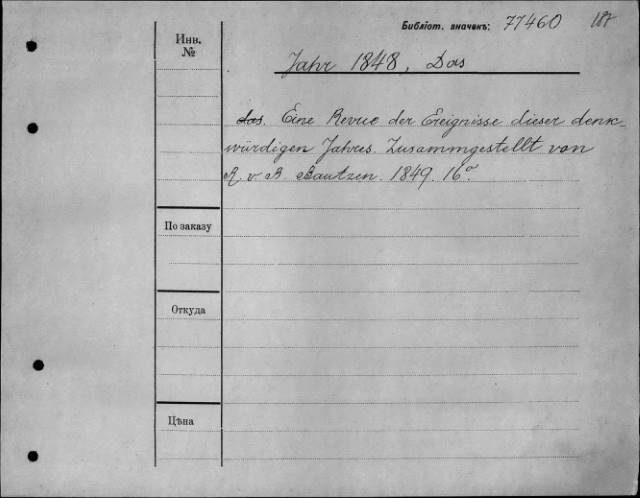 Библіот. значекъ: 77460 187
Инв.
№
Jahr 1848, Das
das. Eine Revue der Ereignisse dieser denk-
würdigen Jahres. Zusammgestellt von
R. v. B. Bautzen. 1849. 16°.
По заказу
Откуда
Цѣна